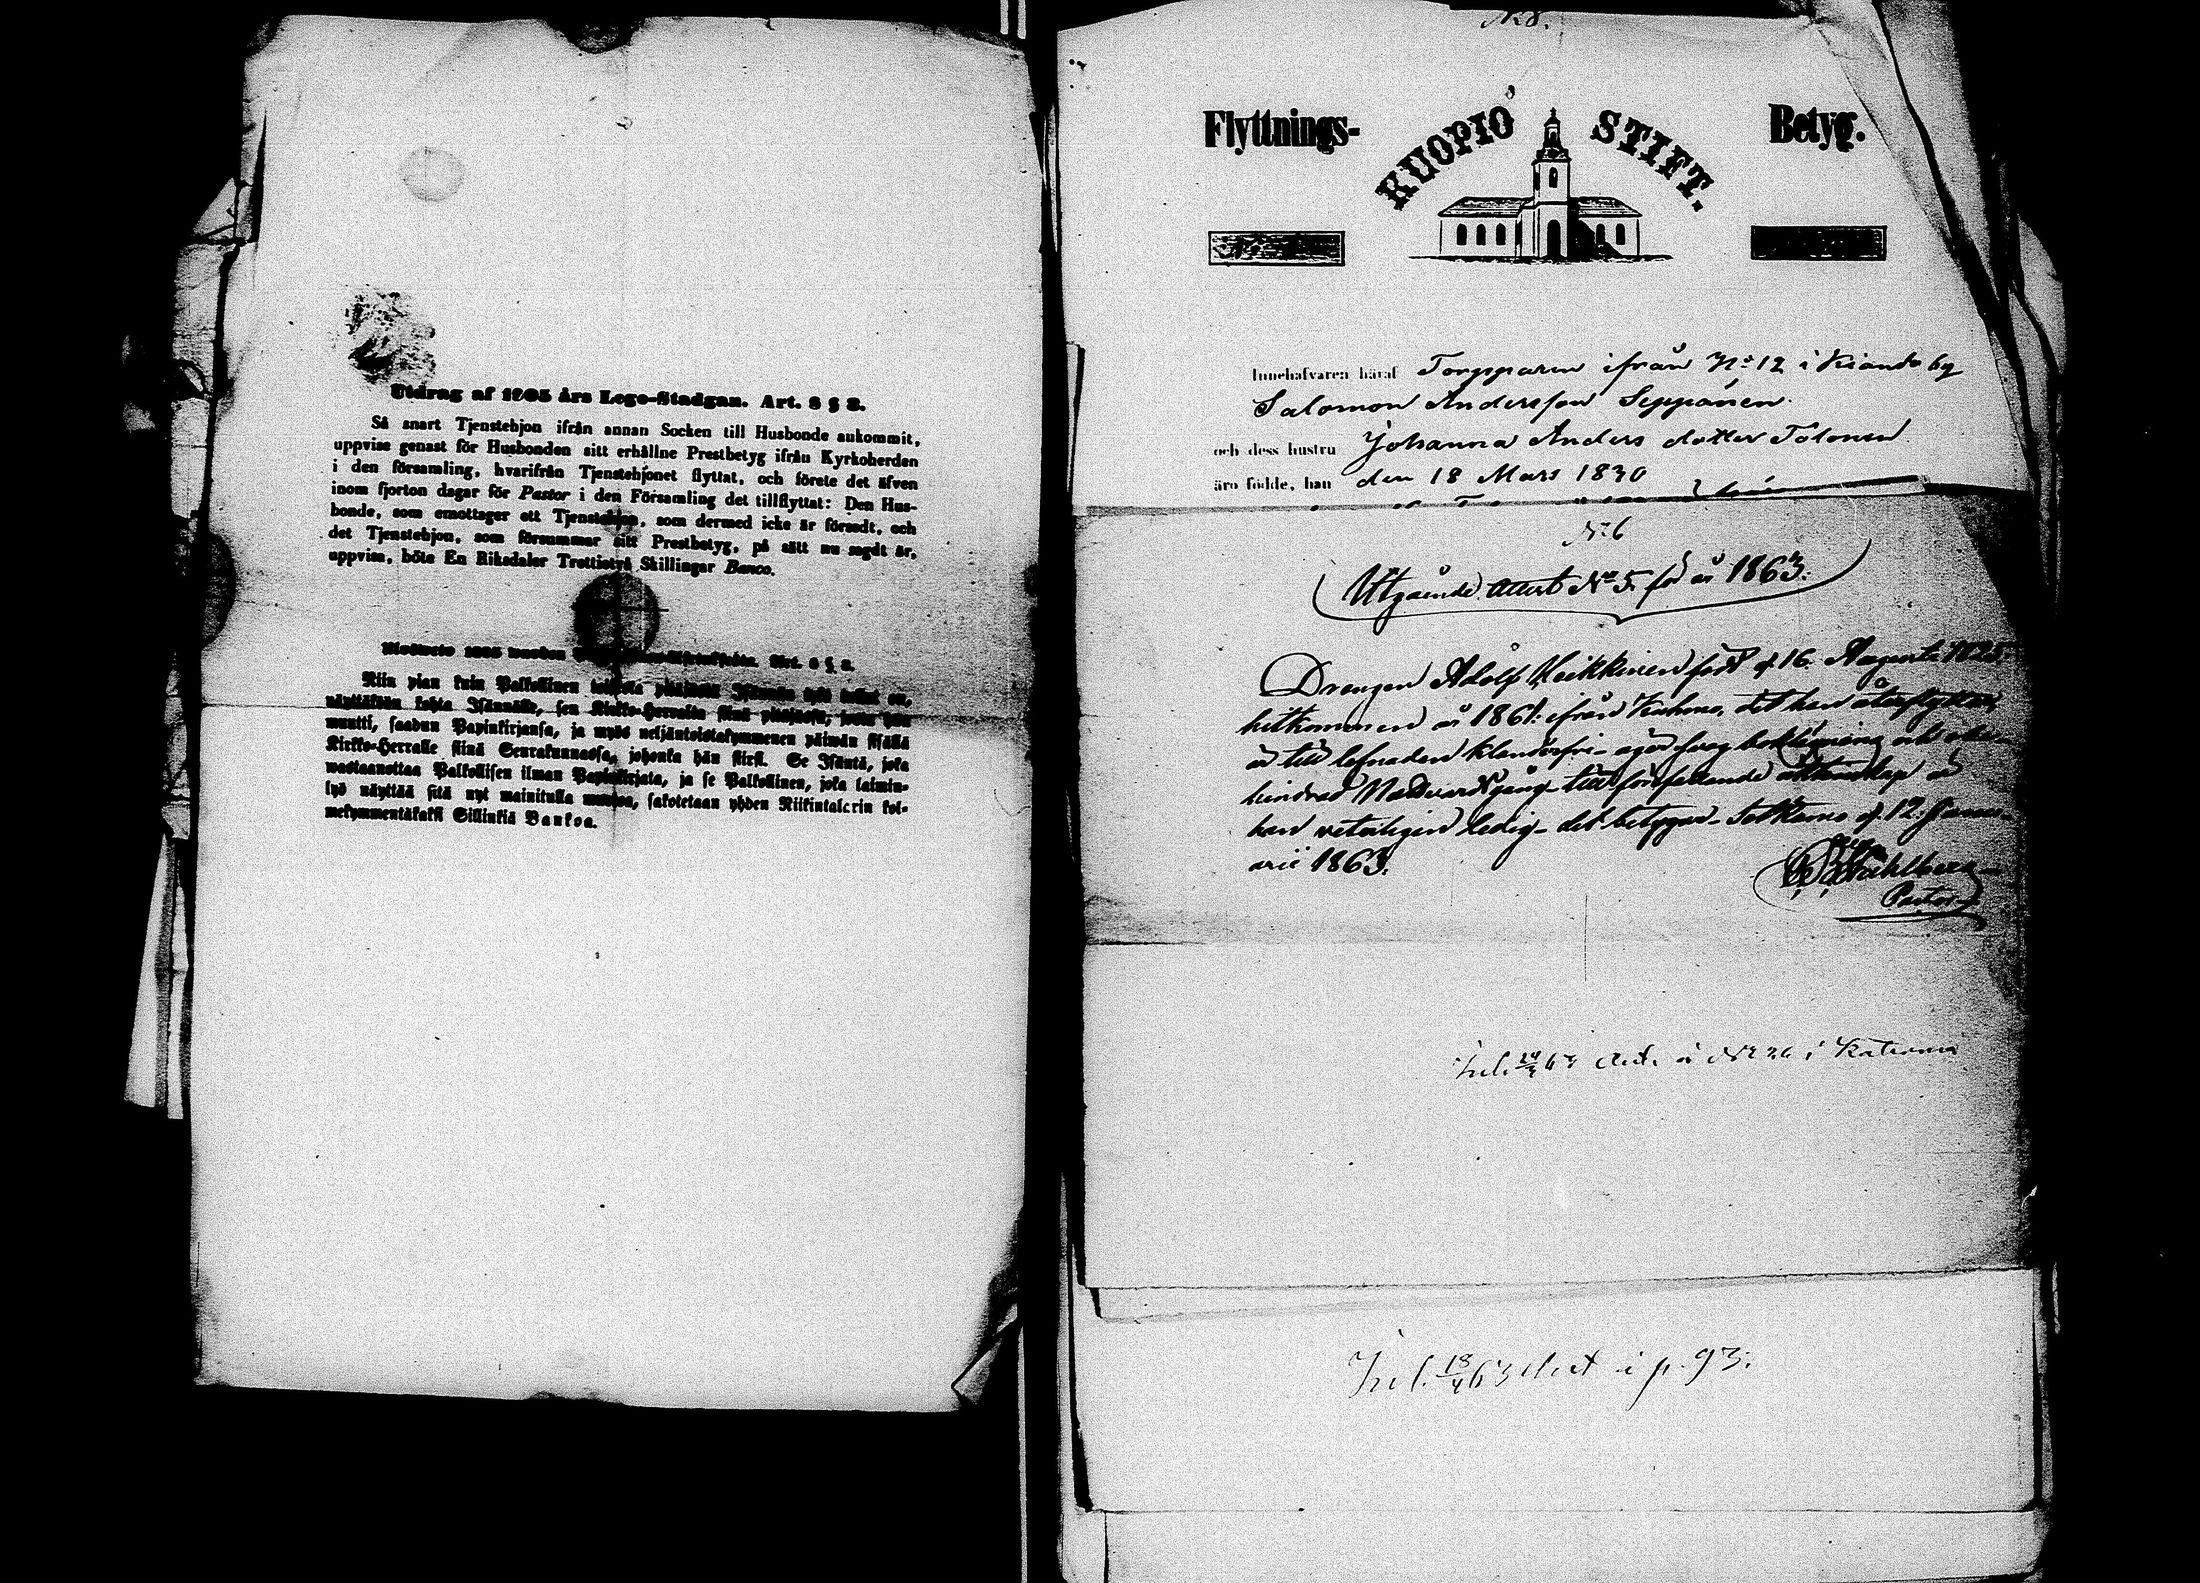 Utdrag af 1805 års Lego-Stadgan. Art. 8 § 8.
Så snart Tjenstehjon ifrån annan Socken till Husbonde ankommit,
uppvise genast för Husbonden sitt erhållne Prestbetyg ifrån Kyrkoherden
i den församling, hvarifrån Tjenstehjonet flyttat, och förete det äfven
inom fjorton dagar för Pastor i den Församling det tillflyttat: Den Hus-
bonde, som emottager ett Tjenstehjon, som dermed icke är försedt, och
det Tjenstehjon, som försummar sitt Prestbetyg, på sätt nu sagdt är,
uppvisa, böte En Riksdaler Trettiotvå Skillingar Banco.
1805 wuoden Art. 8 §. 8.
Niin pian kuin Palkollinen toisesta pitäjästä Isännän tykö tullut on,
näyttäkään kohta Isännälle, sen Kirkko-Herralta siinä pitäjässä, josta hän
muutti, saadun Papinkirjansa, ja myös neljäntoistakymmenen päiwän sisällä
Kirkko-Herralle siinä Seurakunnassa, johonka hän siirsi. Se Isäntä, joka
wastaanottaa Palkollisen ilman Papinkirjata, ja se Palkollinen, joka laimin-
lyö näyttää sitä nyt mainitulla muotoa, sakotetaan yhden Riikintalerin kol-
mekymmentäkaksi Sillinkiä Bankoa.
N:8.
Flyttnings- KUOPIO STIFT. Betyg.
Innehafvaren häraf Torpparen ifrån N:o 12 i Kianta by
Salomon Andersson Seppänen
och dess hustru Johanna Anders dotter Tolonen
äro födde, han den 18 Mars 1830
N:6
Utgående Attest N:o 5. för år 1863:
Drengen Adolf Heikkinen född d. 16. Augusti 1825
hitkommen år 1861. ifrån Kuhmo, det han återflyttar,
är till lefnaden klanderfri- äger svag bokläsning och obe-
hindrad Nattvardsgång- till förfallande äktenskap är
han veterligen ledig- det betygar- Sotkamo d. 12 Janu-
arii 1863.
Ståhlberg
Pastor
Inl. 63 i
Inl. 18/4 63 i p. 93.